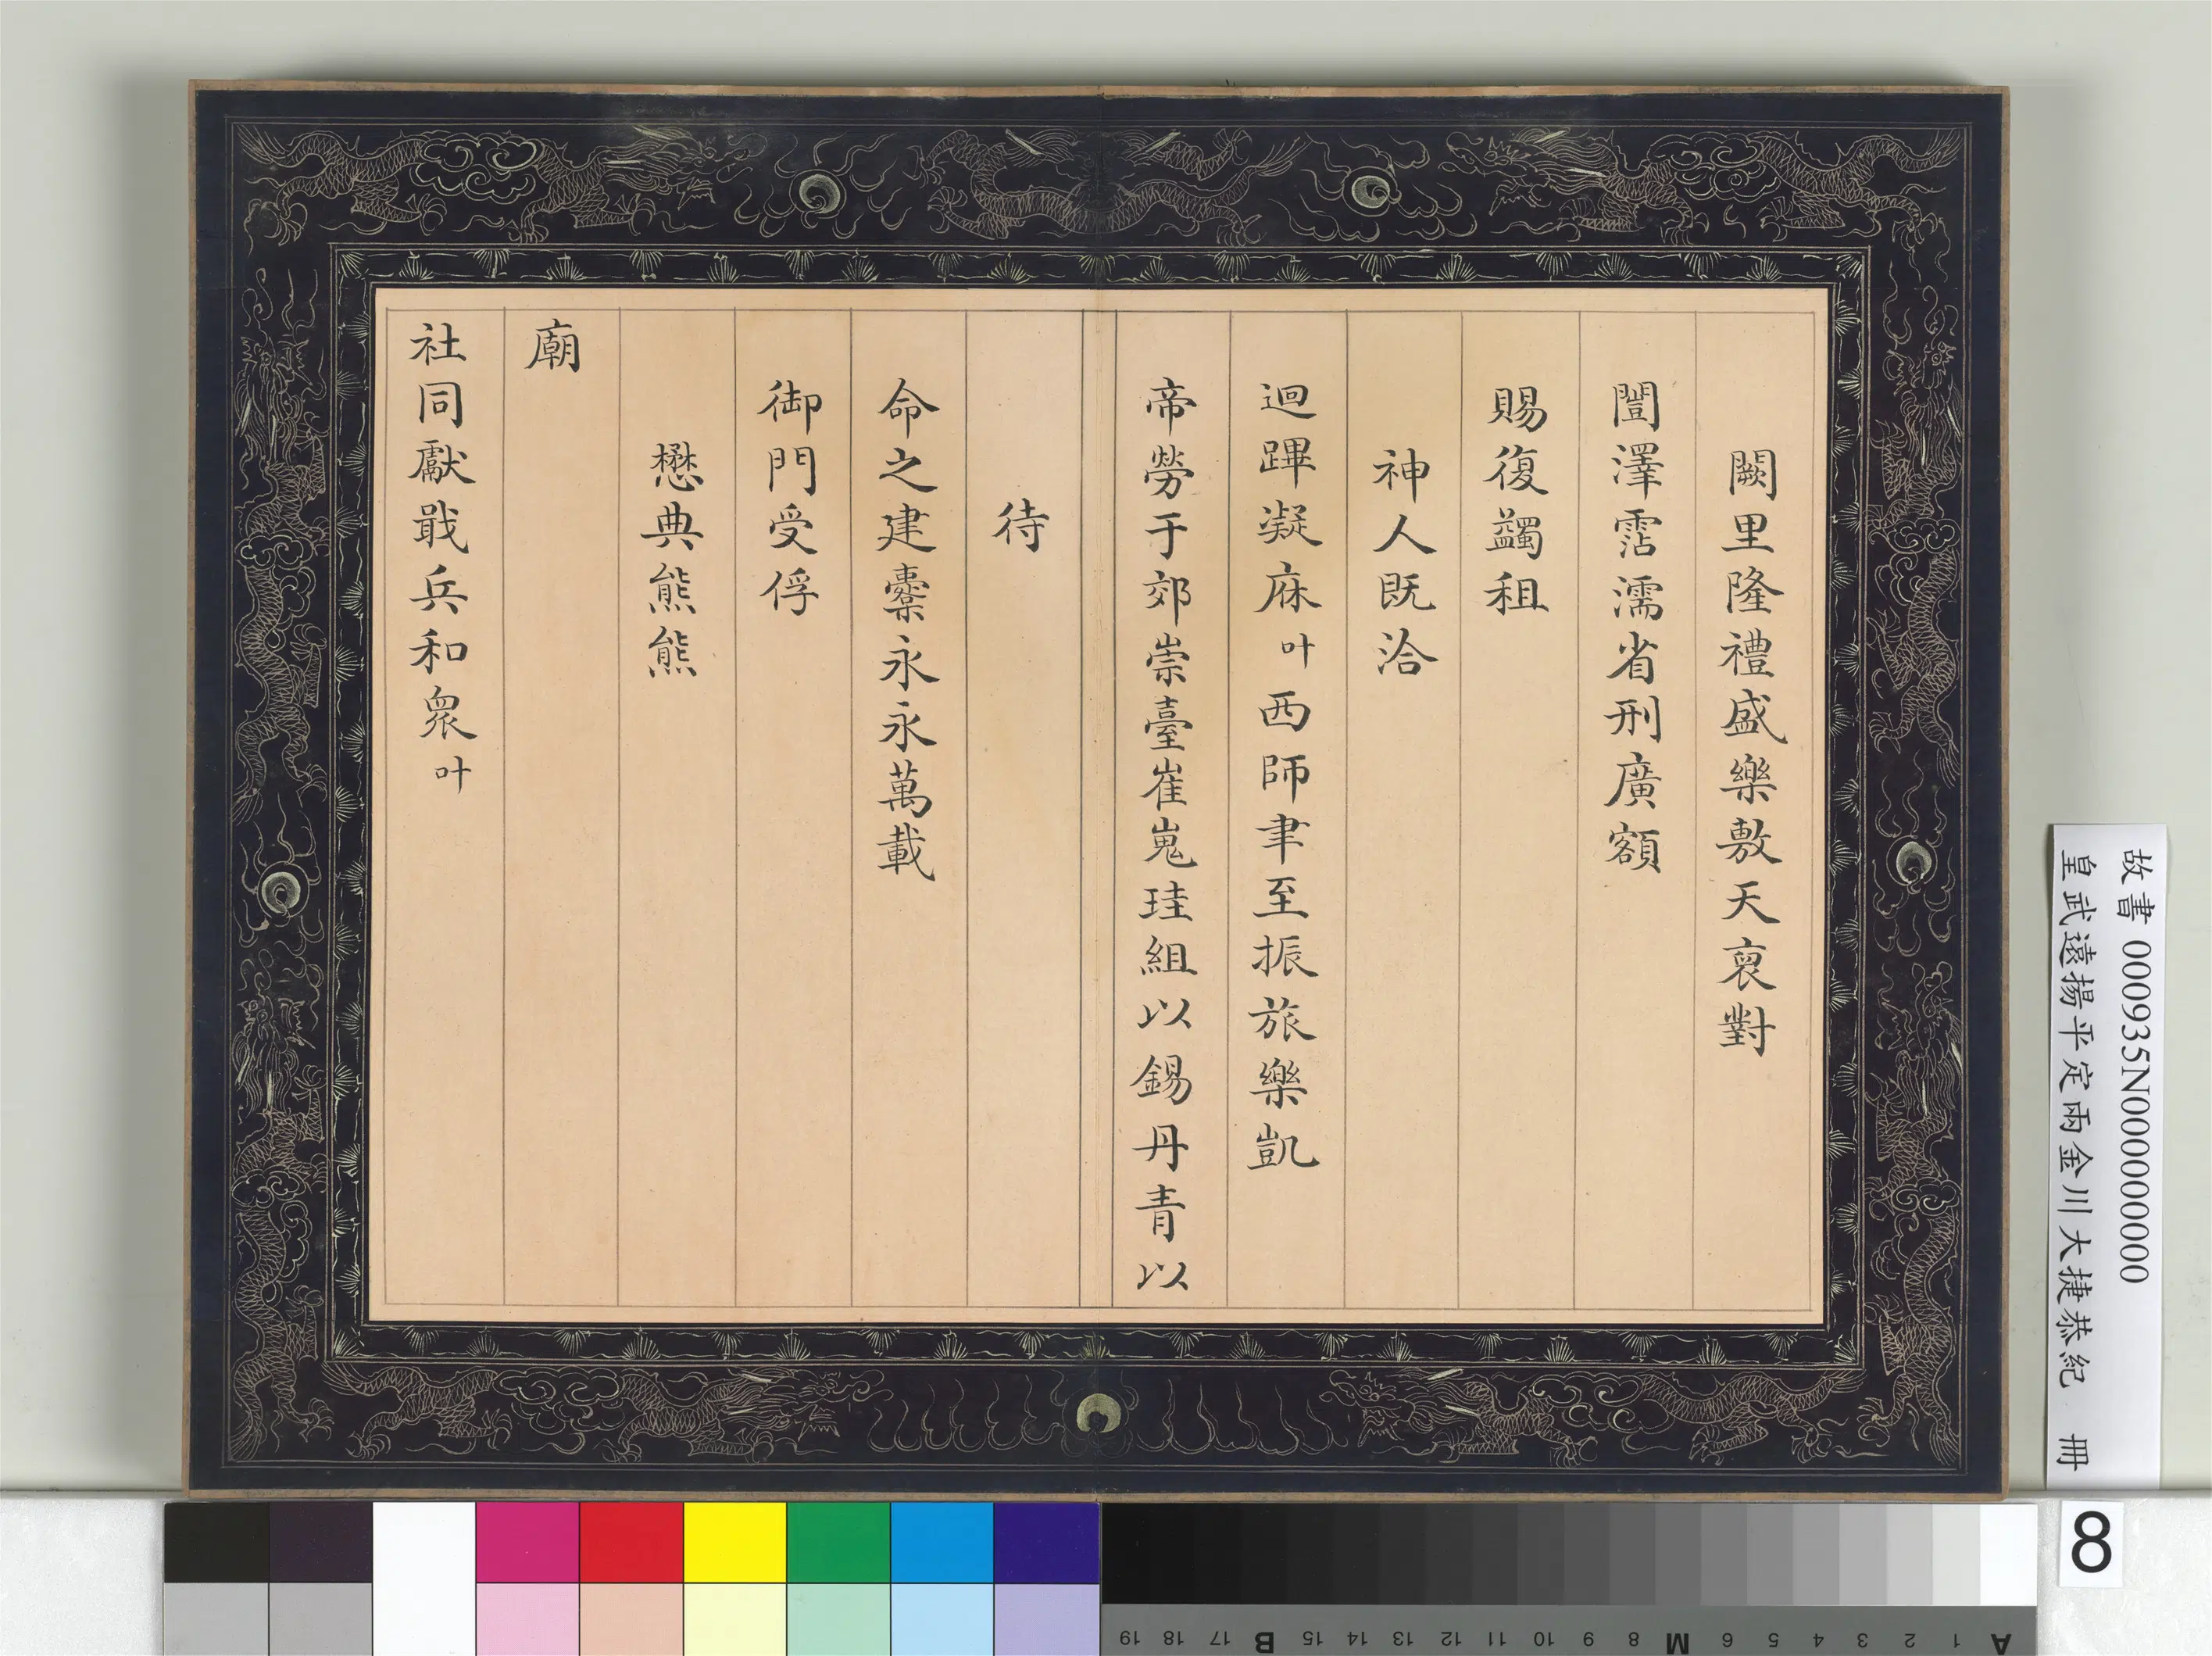 闕里隆禮盛樂敷天裒對
闓澤霑濡省刑廣額
賜復蠲租
神人既洽
迴蹕凝庥叶西師聿至振旅樂凱
帝勞于郊崇臺崔嵬珪組以錫丹青以
待
命之建櫜永永萬載
御門受俘
懋典熊熊
廟
社同獻戢兵和衆叶
故書 000935N000000000
皇武遠揚平定兩金川大捷恭紀 冊
8
19 18 17 B 15 14 13 12 11 10 9 8 M 6 5 4 3 2 1 A